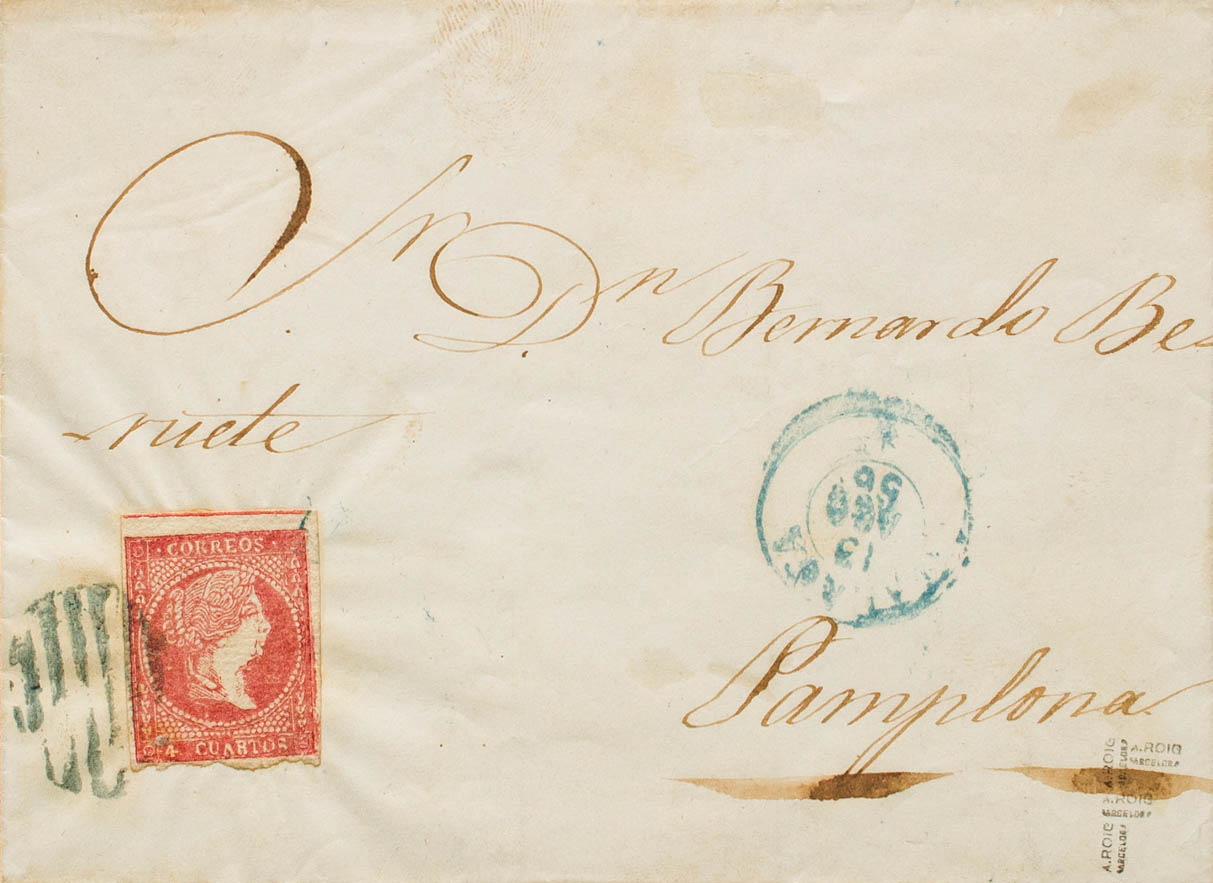 Sr. Dn Bernardo Bes
ruete
CORREOS
4 CUARTOS
13
AGO
56
Pamplona
A.ROIG
BARCELONA
A.ROIG
BARCELONA
A.ROIG
BARCELONA
A.ROIG
BARCELONA